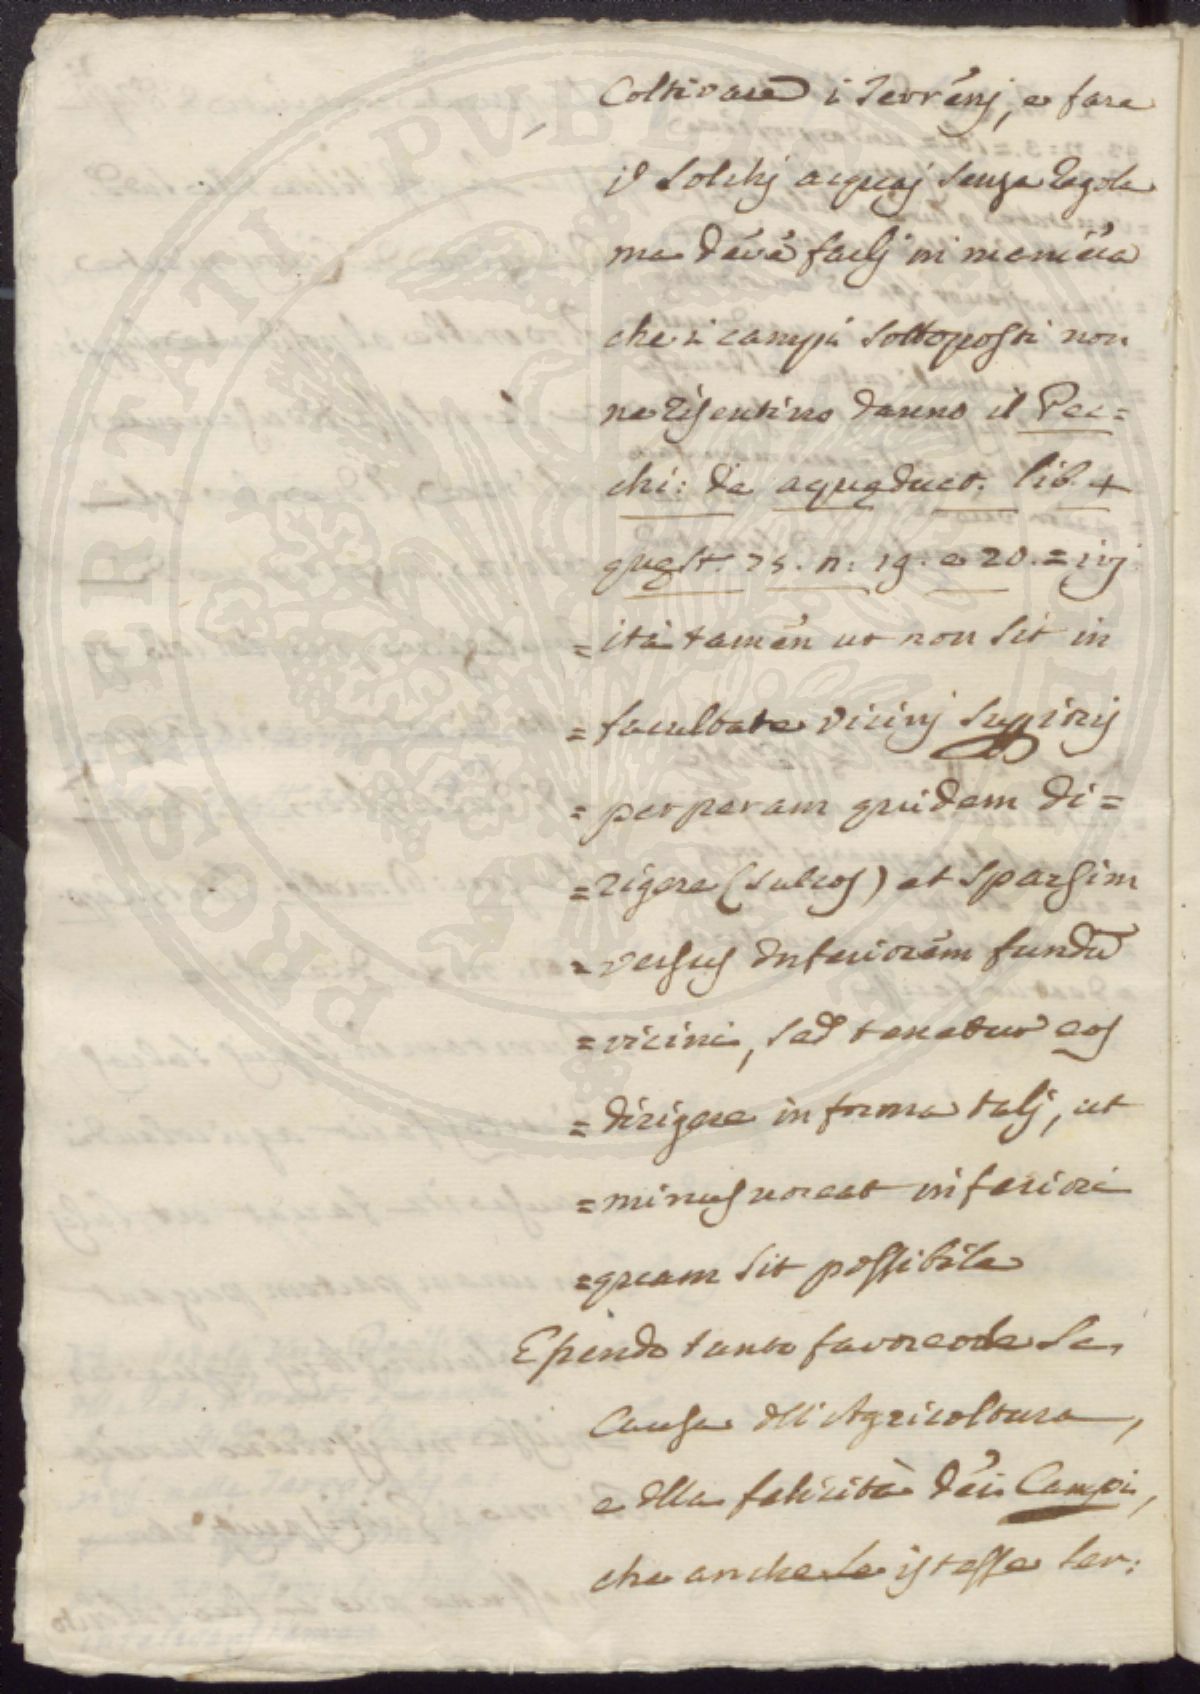 PROSPERITATI PUBLICAE
Coltivare i Terrenj, e fare
i Solchj acquaj senza regola
ma deve farlj in maniera
che i campi sottoposti non
ne risentino danno il Pec=
chi: de aquæduct. lib. 4
quæst. 75. n. 19. e 20. = ivj
= ita tamen ut non sit in
= facultate vicinj superioris
= perperam quidem di=
= rigere (sulcos) et sparsim
= versus inferiorem fundū
= vicini, sed teneatur eos
= dirigere in forma talj, ut
= minus noceat inferiori
= quam sit possibile
Essendo tanto favoreole la
Causa dll'Agricoltura,
e dlla felicità dei Campi,
che anche le istesse ser: